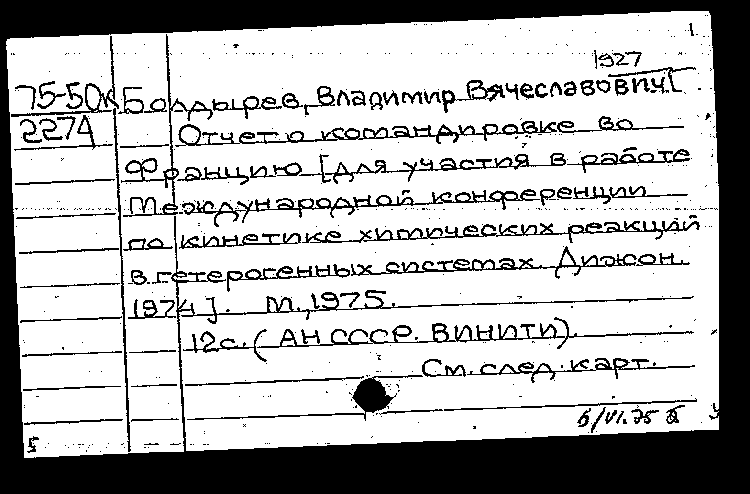 1
1927
75-50к Болдырев, Владимир Вячеславович[
2274 Отчет о командировке во
Францию [для участия в работе
Международной конференции
по кинетике химических реакций
в гетерогенных системах. Дижон.
1974]. М., 1975.
12с. (АН СССР. ВИНИТИ).
См. след. карт.
6/VI.75